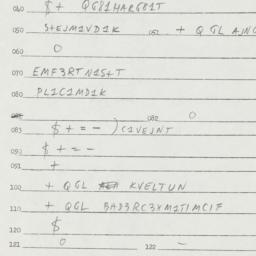 040 $ + QG81HARG81T
050 S+EJM1VD1K 052 + QGL AJNG
060 O
070 EMF3RTN1S+T
080 PL1C1MD1K
082 O
083 $ + = - ) C1VEJNT
090 $ + = -
091 +
100 + QGL KVELTUN
110 + QGL BAD3RC3XM1T1MC1F
120 $
121 O 122 -